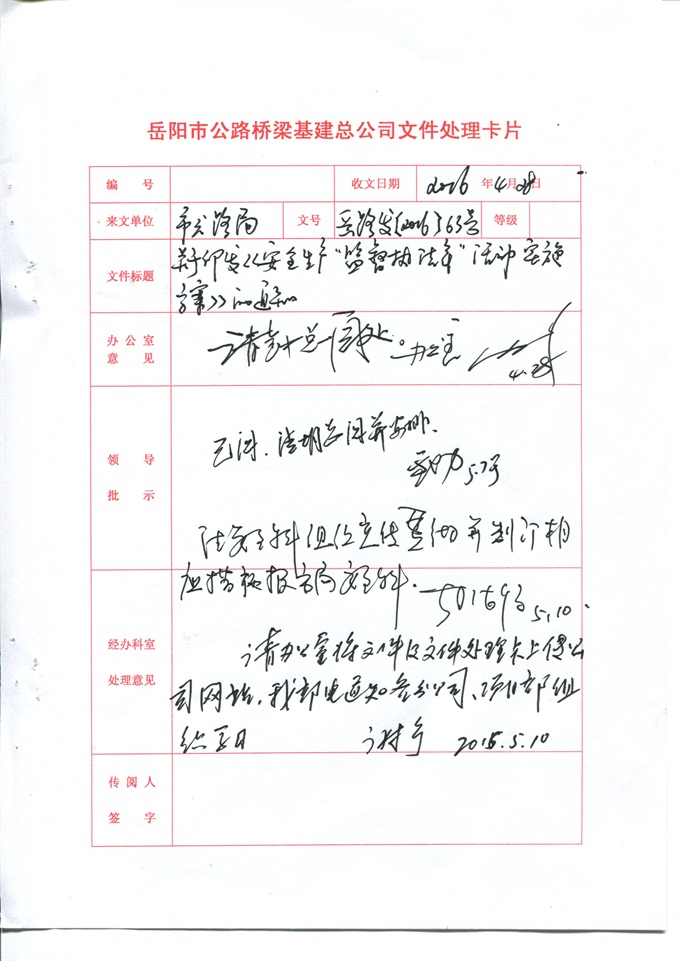 岳阳市公路桥梁基建总公司文件处理卡片
编 号 收文日期 2016 年 4 月 28 日
来文单位 市公路局 文号 岳路发〔2016〕63号 等级
文件标题 关于印发《安全生产“监督执法年”活动实施
方案》的通知
办公室 请 总阅处。 办公室
意见 4.28
领 导 已阅、请 总阅并安排、
批 示 5.3
请安全科组织宣传贯彻并制订相
应措施报市局安全科. 5.10.
经办科室 请办公室将文件及文件处理卡上传公
处理意见 司网站,我部电通知各分公司、项目部组
织学习 2016.5.10
传阅人
签 字